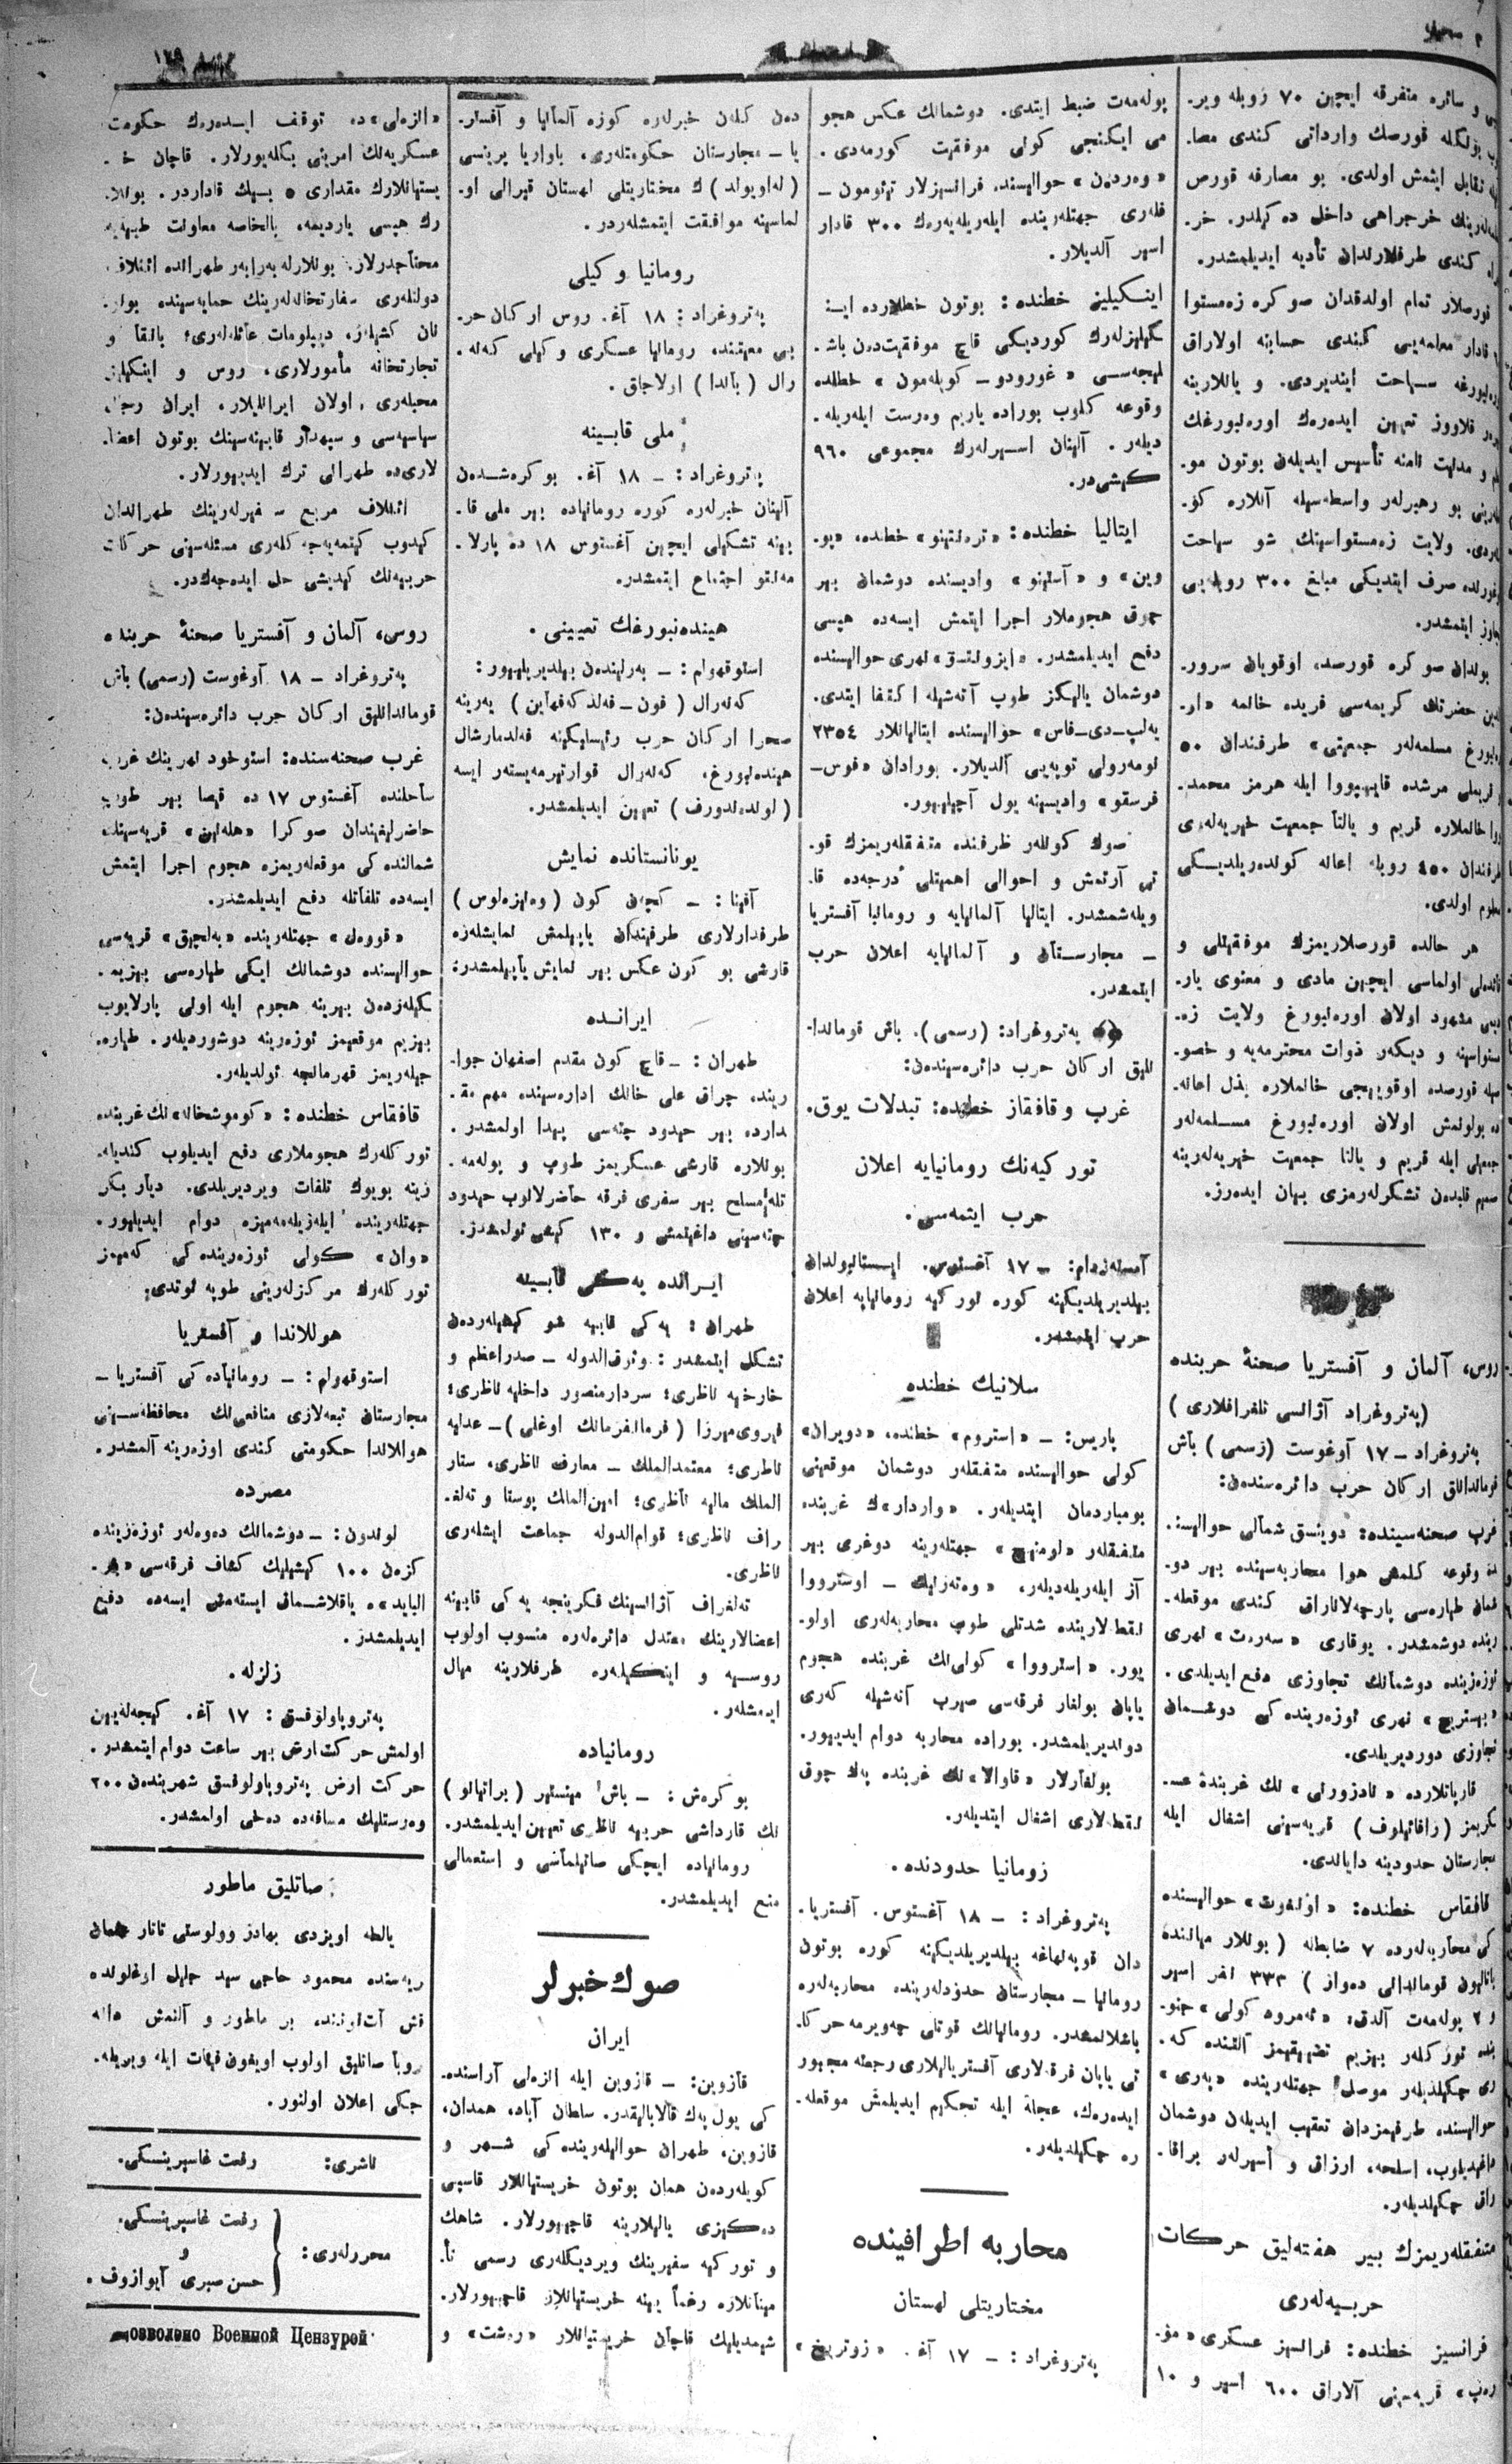 ترجمان
نومرو ١٢٩
ى و سائره متفرقه ايچين ٧٠ روبله وير.
بولكله قورصك وارداتى كندى مصا.
تقابل ايتمش اولدى. بو مصارفه قورص
خرجراهى داخل ده كيلدر. خر.
كندى طرفلارندان تأديه ايديلمشدر.
قورصلار تمام اولدقدان صوكره زهمستوا
قادار معلمه‌يى كندى حسابنه اولاراق
سياحت ايتديردى. و يانلارينه
قلاووز تعيين ايده‌رەك اورەنبورغك
و مدنيت نامنه تأسيس ايديلەن بوتون مو.
بو رهبرلەر واسطه‌سيله آنلاره كو.
ولايت زەمستواسينك شو سياحت
صرف ايتديكى مبلغ ٣٠٠ روبله‌يى
تجاوز ايتمشدر.
بوندان صوكره قورصده اوقويان سرور.
حضرتك كريمه‌سى فريده خانمه «او.
مسلمه‌لەر جمعيتى» طرفندان ٥٠
مرشده قاپهپووا ايله هرمز محمد.
خانملاره قريم و يالتا جمعيت خيريه‌لەرى
طرفندان ٤٥٠ روبله اعانه كوندەريلديكى
معلوم اولدى.
هر حالده قورصلاريمزك موفقيتلى و
فائده‌لى اولماسى ايچين مادى و معنوى يار.
مشهود اولان اورەنبورغ ولايت زە.
مستواسينه و ديكەر ذوات محترمه‌يه و خصو.
قورصده اوقويىجى خانملاره بذل اعانه.
بولونمش اولان اورەنبورغ مسلمه‌لەر
جمعيتى ايله قريم و يالتا جمعيت خيريه‌لەرينه
صميم قلبدەن تشكرلەرمزى بيان ايدەرز.
روس، آلمان و آفستريا صحنهٔ حربنده
(پەتروغراد آژانسى تلغرافلارى)
پەتروغراد – ١٧ آوغوست (رسمى) باش
قوماندانلق اركان حرب دائره‌سندەن:
غرب صحنه‌سينده: دوينسق شمالى حواليسنـ.
وقوعه كلمش هوا محاربه‌سينده بير دو.
شمان طياره‌سى پارچه‌لاناراق كندى موقعلە.
رينده دوشمشدر. يوقارى «سەرەت» نهرى
ئوزەرينده دوشمانك تجاوزى دفع ايديلدى.
«بيستريچ» نهرى ئوزەرينده‌كى دوشمان
تجاوزى دورديريلدى.
قارپاتلارده «نادزورنى» نك غربندۀ عسـ.
كريمز (رافائيلوف) قريه‌سينى اشغال ايله
مجارستان حدودينه دايالدى.
قافقاس خطنده: «اوغنوت» حواليسنده
كى محاربه‌لەرده ٧ ضابطله (بونلار ميانندە
باتاليون قوماندانى دەوار) ٣٣٣ نفر اسير
و ٢ پولەمەت آلدق؛ «نەمرود كولى» جنو.
بنده توركلەر بيزيم تضييقيمز آلتنده كه.
رى چەكيلديلەر موصل جهتلەرينده «بەرى»
حواليسنده طرفيمزدان تعقيب ايديلەن دوشمان
داغيديلوب، اسلحه، ارزاق و أسيرلەر براقا.
راق چەكيلديلەر.
متفقلەريمزك بير هفتەليق حركات
حربيه‌لەرى
فرانسيز خطنده: فرانسيز عسكرى «مو.
رەپ» قريه‌سينى آلاراق ٦٠٠ اسير و ١٠
پولەمەت ضبط ايتدى. دوشمانك عكس هجو
مى ايكنجى كونى موفقيت كورمەدى.
«وەردەن» حواليسنده فرانسيزلار تيئومون –
فلەرى جهتلەرينده ايلەريلەيەرەك ٣٠٠ قادار
اسير آلديلار.
اينكيليز خطنده: بوتون خطلارده ايـ.
نكيليزلەرك كورديكى قاچ موفقيت‌دەن باشـ.
ليجەسى «غورودو – كويلەمون» خطنده
وقوعه كلوب بوراده يارىم وەرست ايلەريلە.
ديلەر. آلينان اسيرلەرك مجموعى ٩٦٠
كيشى‌در.
ايتاليا خطنده: «ترەنتينو» خطنده، «بو.
وين» و «آستيقو» واديسنده دوشمان بير
چوق هجوملار اجرا ايتمش ايسەده هپسى
دفع ايديلمشدر. «ايزونتسق» نهرى حواليسنده
دوشمان يالىكز طوپ آتەشيله اكتفا ايتدى.
يەلپ–دى–قاس» حواليسنده ايتاليانلار ٢٣٥٤
نومەرولى توپەيى آلديلار. بورادان «فوس–
فرسقو» واديسينه يول آچيليور.
صوك كونلەر ظرفنده متفقلەريمزك قو.
تى آرتمش و احوالى اهميتلى درجه‌ده قا.
ويلەشمشدر. ايتاليا آلمانيايه و رومانيا آفستريا
– مجارستان و آلمانيايه اعلان حرب
ايتمشدر.
پەتروغراد: (رسمى). باش قوماندا.
نليق اركان حرب دائره‌سيندەن:
غرب و قافقاز خطنده: تبدلات يوق.
توركيه‌نك رومانيايه اعلان
حرب ايتمه‌سى.
آمستەردام: – ١٧ آغستوس. ايستانبولدان
بيلديريلديكينه كوره توركيه رومانيايه اعلان
حرب ايتمشدر.
سلانيك خطنده
پاريس: – «استروم» خطنده، «دويران»
كولى حواليسنده متفقلەر دوشمان موقعينى
بومباردمان ايتديلەر. «واردار»ك غربنده
متفقلەر «لومنيچ» جهتلەرينه دوغرى بير
آز ايلەريلەديلەر، «وەتەرنيك – اوسترووا
نقطەلارينده شدتلى طوپ محاربه‌لەرى اولو.
يور. «استرووا» كولىنك غربنده هجوم
ياپان بولغار فرقه‌سى صيرپ آتەشيله كەرى
دونديريلمشدر. بوراده محاربه دوام ايدييور.
بولغارلار «قاوالا»نك غربنده پەك چوق
نقطەلارى اشغال ايتديلەر.
رومانيا حدودنده.
پەتروغراد: – ١٨ آغستوس. آفستريا.
دان قوپەنهاغه بيلديريلديكينه كوره بوتون
رومانيا – مجارستان حدودلەرينده محاربه‌لەره
باشلانمشدر. رومانيانك قوتلى چەويرمه حركا.
تى ياپان فرقەلارى آفستريالىلارى رجعته مجبور
ايدەرەك، عجله ايله تحكيم ايديلمش موقعلە.
ره چەكيلديلەر.
محاربه اطرافينده
مختاريتلى لهستان
پەتروغراد: – ١٧ آغ. «زوتريخ»
دەن كلەن خبرلەره كوره آلمانيا و آفستر.
يا – مجارستان حكومتلەرى، باواريا پرنسى
(لەاوپولد)ك مختاريتلى لهستان قيرالى او.
لماسينه موافقت ايتمشلەردر.
رومانيا وكيلى
پەتروغراد: ١٨ آغ. روس اركان حر.
بى معيتنده رومانيا عسكرى وكيلى كەنە.
رال (باندا) اولاجاق.
ملى قابينه
پەتروغراد: – ١٨ آغ. بوكرەشدەن
آلينان خبرلەره كوره رومانياده بير ملى قا.
بينه تشكيلى ايچين آغستوس ١٨ ده پارلا.
مەنتو اجتماع ايتمشدر.
هيندەنبورغك تعيينى.
استوقهولم: – بەرليندەن بيلديريلييور:
كەنەرال (فون – فەلدكەنهاين) يەرينه
صحرا اركان حرب رئيسليكينه فەلدمارشال
هيندەنبورغ، كەنەرال قوارتيرمەيستەر ايسه
(لودەندورف) تعيين ايديلمشدر.
يونانستانده نمايش
آفينا: – كچەن كون (وەنيزەلوس)
طرفدارلارى طرفيندان ياپيلمش نمايشلەره
قارشى بو كون عكس بير نمايش ياپيلمشدر:
ايرانده
طهران: – قاچ كون مقدم اصفهان جوا.
رينده چراق على خانك اداره‌سينده مهم مقـ.
دارده بير حيدود چتەسى پيدا اولمشدر.
بونلاره قارشى عسكريمز طوپ و پولەمه.
تله مسلح بير سفرى فرقه حاضرلانوب حيدود
چتەسينى داغيتمش و ١٣٠ كيشى ئولمشدر.
ايرانده يەكى قابينه
طهران: يەكى قابينه شو كيشيلەردەن
تشكل ايتمشدر: وثوق‌الدوله – صدراعظم و
خارخيه ناظرى؛ سردارمنصور داخليه ناظرى؛
فيروى‌ميرزا (فرمانفرمانك اوغلى) – عدليه
ناظرى؛ معتمدالملك – معارف ناظرى، ستار
الملك ماليه ناظرى؛ امين‌الملك پوستا و تەلغـ.
راف ناظرى؛ قوام‌الدوله جماعت ايشلەرى
ناظرى.
تەلغراف آژانسينك فكرينجه يەكى قابينه
اعضالارينك معتدل دائره‌لەره منسوب اولوب
روسيه و اينكيلتەره طرفلارينه ميال
ايدمشلەر.
رومانياده
بوكرەش: – باش مينستير (براتيانو)
نك قارداشى حربيه ناظرى تعيين ايديلمشدر.
رومانياده ايچكى صاتيلماسى و استعمالى
منع ايديلمشدر.
صوك خبرلر
ايران
قازوين: – قازوين ايله انزەلى آراسنده.
كى يول پەك قالابالىقدر. سلطان آباد، همدان،
قازوين، طهران حواليلەرينده‌كى شهر و
كويلەردەن همان بوتون خريستيانلار قاسپى
دەكيزى يالىلارينه قاچييورلار. شاهك
و توركيه سفيرينك ويرديكلەرى رسمى تأ.
ميناتلاره رغماً يينه خريستيانلار قاچييورلار.
شيمديليك قاچان خريستيانلار «رەشت» و
«انزەلى»ده توقف ايدەرەك حكومت
عسكريه‌نك امرينى بكلەيورلار. قاچان خـ.
يستيانلارك مقدارى ٥ بيك قاداردر. بونلا.
رك هپسى يارديمه، بالخاصه معاونت طبيه‌يه
محتاجدرلار. بونلارله بەرابەر طهرانده ائتلاف
دولتلەرى سفارتخانه‌لەرينك حمايه‌سينده بولو.
نان كشيلەر، ديپلومات عائله‌لەرى؛ بانقا و
تجارتخانه مأمورلارى، روس و اينكيليز
محبلەرى اولان ايرانليلار، ايران رجال
سياسيه‌سى و سپهدار قابينه‌سينك بوتون اعضا.
لارى‌ده طهرانى ترك ايدييورلار.
ائتلاف مربع سفيرلەرينك طهراندان
كيدوب كيتمه‌يه‌جەكلەرى مسئله‌سينى حركات
حربيه‌نك كيديشى حل ايدەجەكدر.
روس، آلمان و آفستريا صحنهٔ حربنده
پەتروغراد – ١٨ آوغوست (رسمى) باش
قوماندانليق اركان حرب دائره‌سيندەن:
غرب صحنه‌سنده: استوخود نهرينك غرب
ساحلنده آغستوس ١٧ ده قيصا بير طوپ
حاضرليغيندان صوكرا «هلەنين» قريه‌سينك
شمالنده‌كى موقعلەريمزه هجوم اجرا ايتمش
ايسەده تلفاتله دفع ايديلمشدر.
«قووەل» جهتلەرينده «يەلچيق» قريه‌سى
حواليسنده دوشمانك ايكى طياره‌سى بيزيم.
كيلەردەن بيرينه هجوم ايله اونى پارلايوب
بيزيم موقعيمز ئوزەرينه دوشورديلەر. طياره.
جيلەريمز قهرمانجه ئولديلەر.
قافقاس خطنده: «كوموشخانه»نك غربنده
توركلەرك هجوملارى دفع ايديلوب كنديلە.
رينه بويوك تلفات ويرديريلدى. ديار بكر
جهتلەرينده ايلەريلەمەميزه دوام ايديليور.
«وان» كولى ئوزەرينده‌كى كەميمز
توركلەرك مركزلەرينى طوپه طوتدى:
هوللاندا و آفستريا
استوقهولم: – رومانياده‌كى آفستريا –
مجارستان تبعه‌لارى منافعى‌نك محافظه‌سينى
هوللاندا حكومتى كندى اوزەرينه آلمشدر.
مصرده
لوندون: – دوشمانك دەوەلەر ئوزەرينده
كزەن ١٠٠ كيشيليك كشاف فرقه‌سى
ياقلاشماق ايستەمش ايسەده دفع
ايديلمشدر.
زلزله.
پەتروپاولوفسق: ١٧ آغ. كيجەلەيين
اولمش حركت‌ارض بير ساعت دوام ايتمشدر.
حركت ارض پەتروپاولوفسق شهريندەن ٢٠٠
وەرستليك مسافه‌ده دەخى اولمشدر.
صاتليق ماطور
يالطه اويزدى بهادر وولوستى تاتار عثمان
قريه‌سنده محمود حاجى سيد جليل اوغلونده
بر ماطور و آلتمش دانه
صاتليق اولوب اويغون فيئات ايله ويريله.
جكى اعلان اولنور.
ناشرى: رفعت غاسپرينسكى.
محررلەرى: رفعت غاسپرينسكى.
و
حسن صبرى آيوازوف.
Дозволено Военной Цензурой